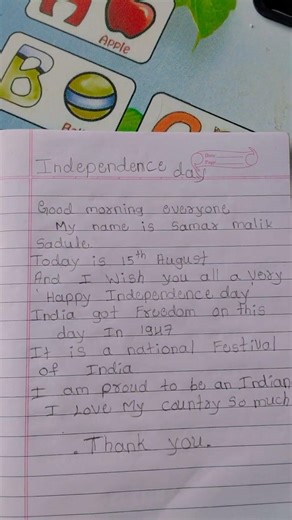 Apple
B
Independence day
Good morning everyone
My name is Samar malik
Sadule.
Today is 15th August
And I Wish you all a very
'Happy Independence day'
India got Freedom on this
day In 1947
It is a national Festival
of India
I am proud to be an Indian
I Love My country so much
. Thank you.